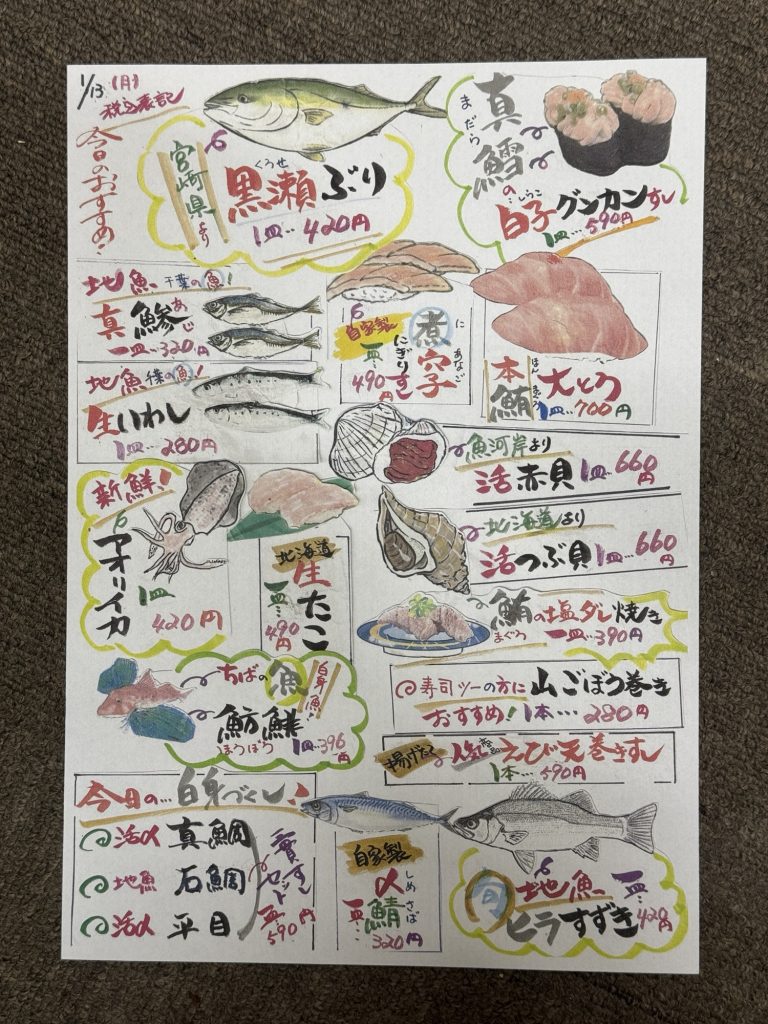 1/13(月)
税込表記
今日のおすすめ!
宮崎県より
くろせ
黒瀬ぶり
1皿…420円
まだら
真鱈の
しらこ
白子グンカンすし
1皿…590円
地魚 千葉の魚!
あじ
真鯵
一皿…320円
自家製
に あなご
煮穴子
にぎりすし
一皿…490円
ほん まぐろ
本鮪
大とろ
1皿…700円
地魚 千葉の魚!
生いわし
1皿…280円
魚河岸より
活赤貝 1皿…660円
新鮮!
アオリイカ
1皿
420円
北海道
生たこ
一皿…490円
北海道より
活つぶ貝 1皿…660円
鮪の塩ダレ焼き
まぐろ
一皿…390円
ちばの魚
白身魚!
魴鮄
ほうぼう
1皿…396円
寿司ツーの方に 山ごぼう巻き
おすすめ! 1本…280円
揚げたて 人気 えび天巻きすし
1本…590円
今日の…白身づくし!
活〆 真鯛
地魚 石鯛
活〆 平目
一皿…590円
自家製
しめさば
〆鯖
一皿…
320円
旬 地魚 一皿…420円
ヒラすずき